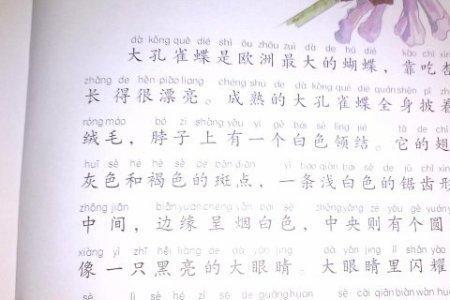 dà kǒng què dié shì ōu zhōu zuì dà de hú dié kào chī xìn
大孔雀蝶是欧洲最大的蝴蝶，靠吃杏
zhǎng de hěn piào liang chéng shú de dà kǒng què dié quán shēn pī zhe
长得很漂亮。成熟的大孔雀蝶全身披着
róng máo bó zi shàng yǒu yí gè bái sè lǐng jié tā de chì
绒毛，脖子上有一个白色领结。它的翅
huī sè hé hè sè de bān diǎn yì tiáo qiǎn bái sè de jù chǐ xíng
灰色和褐色的斑点，一条浅白色的锯齿形
zhōng jiān biān yuán chéng yān bái sè zhōng yāng zé yǒu gè yuán
中间，边缘呈烟白色，中央则有个圆
xiàng yì zhī hēi liàng de dà yǎn jing dà yǎn jing lǐ shǎn yào
像一只黑亮的大眼睛。大眼睛里闪耀